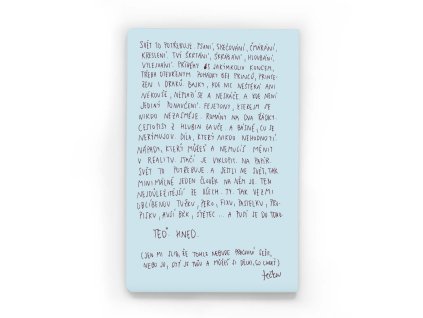 SVĚT TO POTŘEBUJE. PSANÍ, SKEČOVÁNÍ, ČMÁRÁNÍ,
KRESLENÍ. TVÉ ŠKRTÁNÍ, ŠKRÁBÁNÍ, HLOUBÁNÍ,
VYLEJVÁNÍ. PŘÍBĚHY S JAKÝMKOLIV KONCEM,
TŘEBA OTEVŘENÝM. POHÁDKY BEZ PRINCŮ, PRINCE-
ZEN I DRAKŮ. BAJKY, KDE NIC NEŠTĚKÁ ANI
NEKOUŠE, NEPLAZÍ SE A NESKÁČE, A KDE NENÍ
JEDINÝ PONAUČENÍ. FEJETONY, KTEREJM SE
NIKDO NEZASMĚJE. ROMÁNY NA DVA ŘÁDKY.
CESTOPISY Z HLUBIN GAUČE. A BÁSNĚ, CO SE
NERÝMUJOU. DÍLA, KTERÝ NIKDO NEHODNOTÍ.
NÁPADY, KTERÝ MŮŽEŠ A NEMUSÍŠ MĚNIT
V REALITU. STAČÍ JE VYKLOPIT. NA PAPÍR.
SVĚT TO POTŘEBUJE. A JESTLI NE SVĚT, TAK
MINIMÁLNĚ JEDEN ČLOVĚK NA NĚM JE. TEN
NEJDŮLEŽITĚJŠÍ ZE VŠECH. TY. TAK VEZMI
OBLÍBENOU TUŽKU, PERO, FIXU, PASTELKU, PRO-
PISKU, HUSÍ BRK, ŠTĚTEC ... A PUSŤ SE DO TOHO.
TEĎ. HNED.
(JEN MI SLIB, ŽE TOHLE NEBUDE PRACOVNÍ SEŠIT,
NEBO JO, DYŤ JE TVŮJ A MŮŽEŠ SI DĚLAT, CO CHCEŠ)